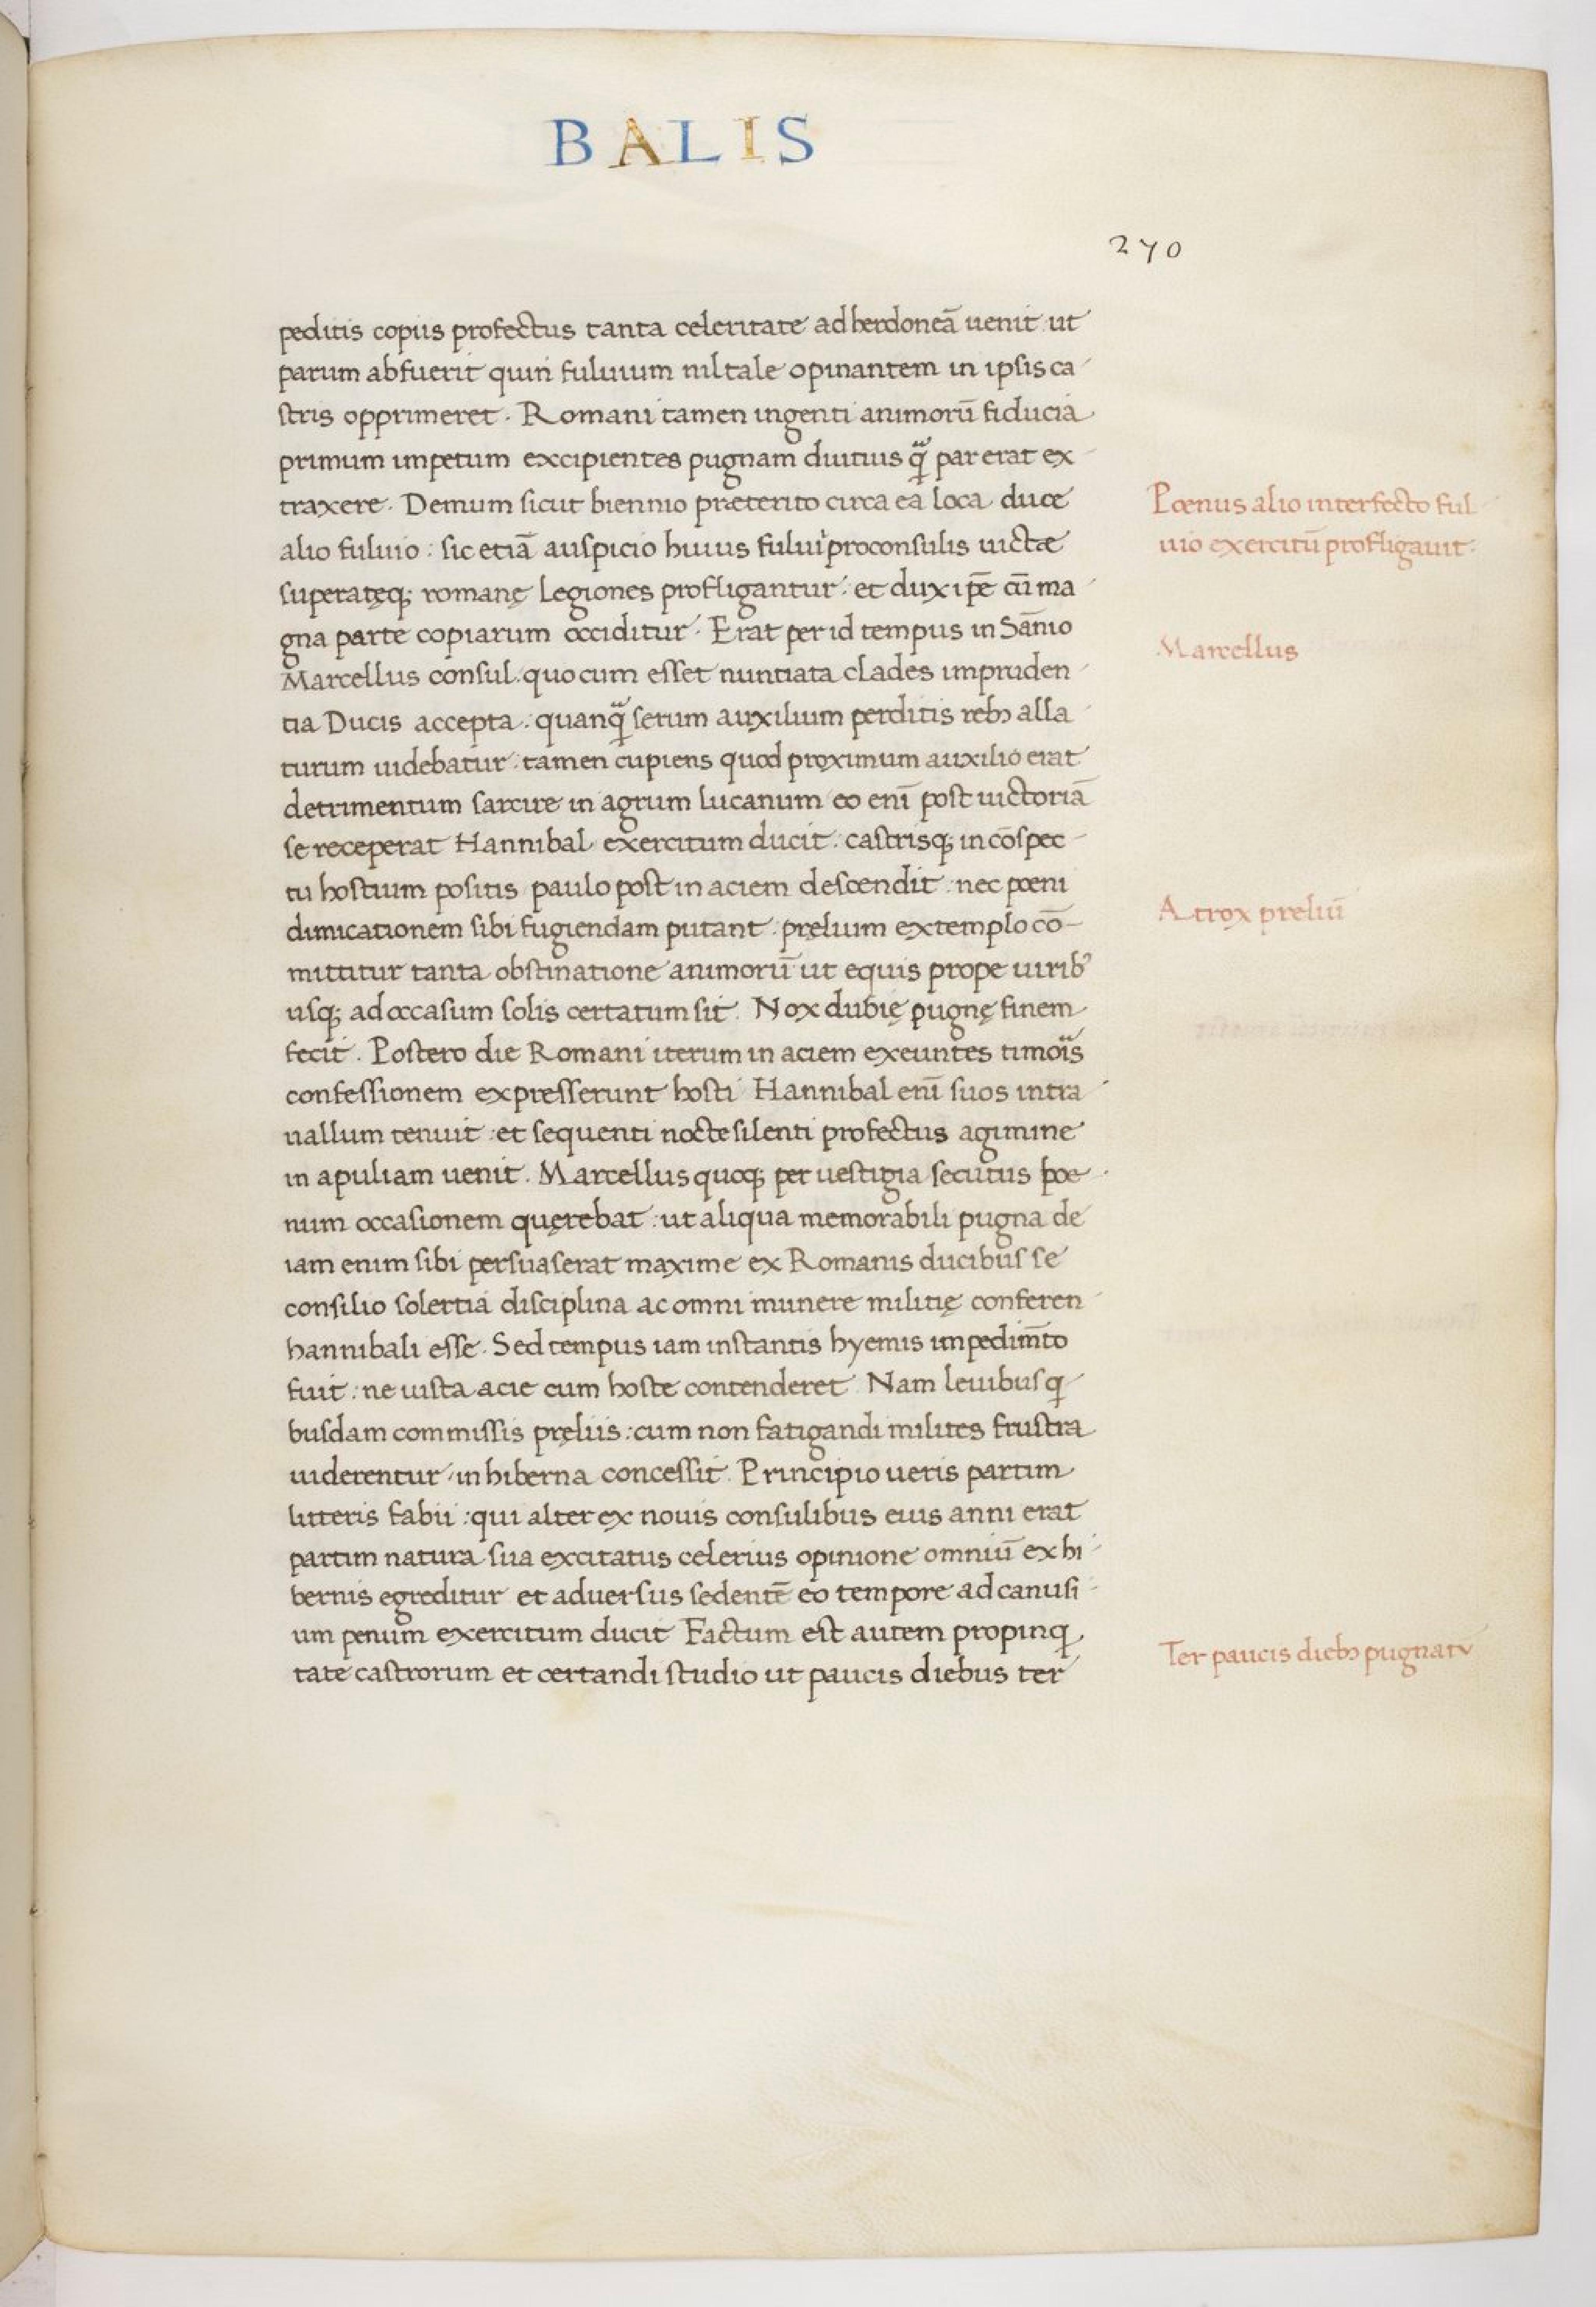 BALIS
270
peditis copiis profectus tanta celeritate ad herdoneā uenit ut
parum abfuerit quin fuluium nil tale opinantem in ipsis ca
stris opprimeret. Romani tamen ingenti animorū fiducia
primum impetum excipientes pugnam diutius qᷓ par erat ex
traxere. Demum sicut biennio præterito circa ea loca duce
alio fuluio: sic etiā auspicio huius fului proconsulis uictæ
superatęq; romanę legiones profligantur: et dux ip̄e cū ma
gna parte copiarum occiditur. Erat per id tempus in Sānio
Marcellus consul. quo cum esset nuntiata clades impruden
tia Ducis accepta: quanqᷓ serum auxilium perditis rebꝫ alla
turum uidebatur: tamen cupiens quod proximum auxilio erat
detrimentum sarcire in agrum lucanum eo enī post uictoriā
se receperat Hannibal exercitum ducit: castrisq; in cōspec
tu hostium positis paulo post in aciem descendit: nec pœni
dimicationem sibi fugiendam putant: pręlium extemplo cō
mittitur tanta obstinatione animorū ut equis prope uiribꝰ
usq; ad occasum solis certatum sit. Nox dubię pugnę finem
fecit. Postero die Romani iterum in aciem exeuntes timoris
confessionem expresserunt hosti Hannibal enī suos intra
uallum tenuit: et sequenti nocte silenti profectus agimine
in apuliam uenit. Marcellus quoq; per uestigia secutus poe
num occasionem quęrebat: ut aliqua memorabili pugna de
iam enim sibi persuaserat maxime ex Romanis ducibus se
consilio solertia disciplina ac omni munere militię conferen
hannibali esse. Sed tempus iam instantis hyemis impedim̄to
fuit: ne iusta acie cum hoste contenderet Nam leuibus qͥ
busdam commissis pręliis: cum non fatigandi milites frustra
uiderentur in hiberna concessit. Principio ueris partim
litteris fabii: qui alter ex nouis consulibus eius anni erat
partim natura sua excitatus celerius opinione omniū ex hi
bernis egreditur et aduersus sedentē eo tempore ad canusi
um penum exercitum ducit Factum est autem propinq
tate castrorum et certandi studio ut paucis diebus ter
Pœnus alio interfecto ful
uio exercitū profligauit.
Marcellus
Atrox preliū
Ter paucis diebꝫ pugnatū